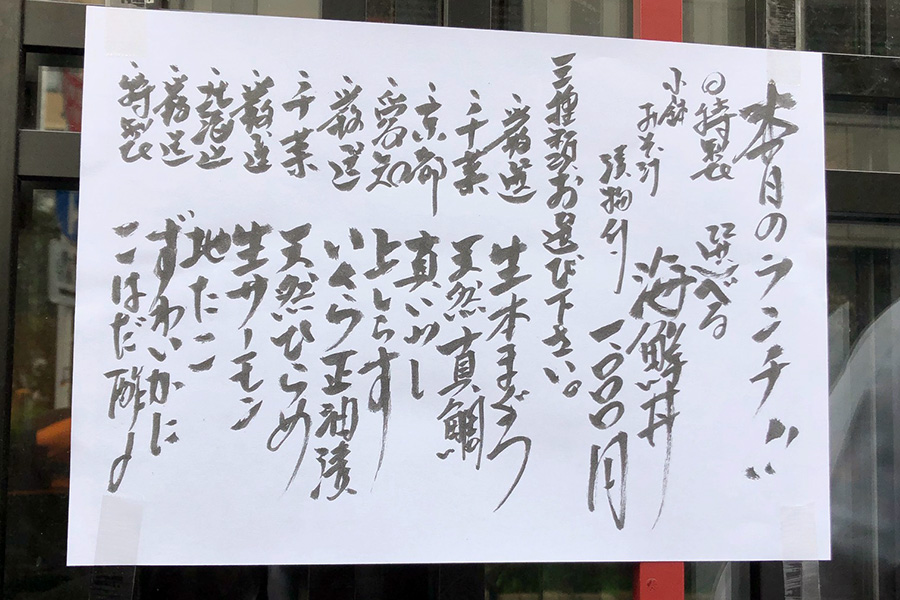 本日のランチ!!
◎特製 選べる 海鮮丼
小鉢
おみそ汁
漬物付 一、〇〇〇円
三種類お選び下さい。
・厳選 生本まぐろ
・千葉 天然真鯛
・京都 真いわし
・愛知 上しらす
・厳選 いくら正油漬
・千葉 天然ひらめ
・厳選 生サーモン
・北海道 地たこ
・厳選 ずわいかに
・特製 こはだ酢〆